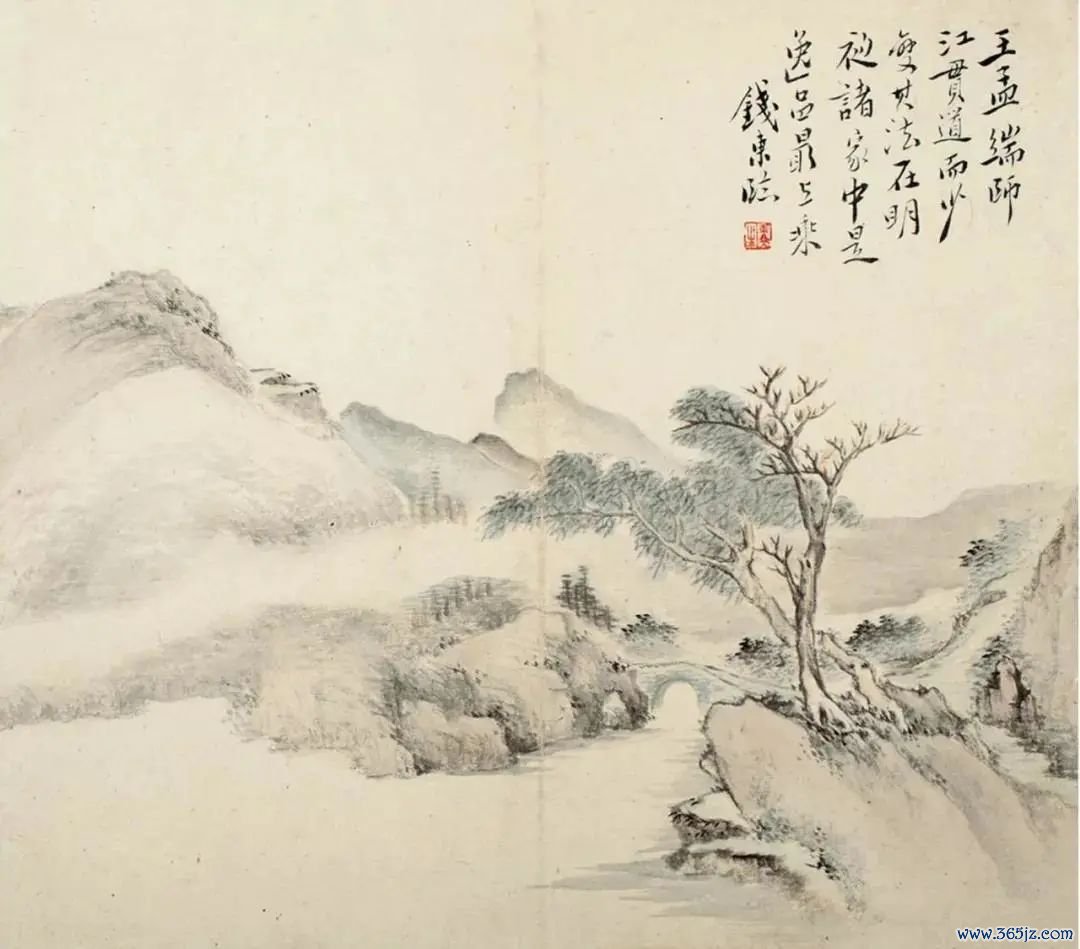 王孟端師
江貫道而少
變其法在明
初諸家中是
逸品最上乘
錢東臨
www.365jz.com